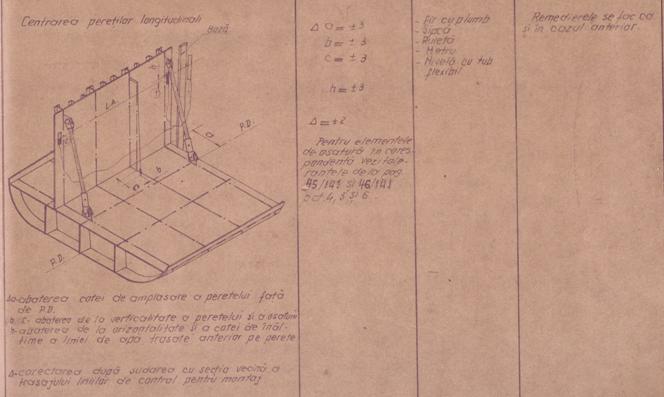 Centrarea pereților longitudinali
Bază
L.A.
P.D.
a
b
c
P.D.
a-abaterea cotei de amplasare a peretelui față
de P.D.
b, c- abaterea de la verticalitate a peretelui și a osaturii
h-abaterea de la orizontalitate și a cotei de înăl-
țime a liniei de apă trasate anterior pe perete
Δ-corectarea după sudarea cu secția vecină a
trasajului liniilor de control pentru montaj
Δ a = ±3
b = ±3
c = ±3
h = ±3
Δ = ±2
Pentru elementele
de osatură în cores-
pondență vezi tole-
ranțele de la pag.
45/141 și 46/141
pct 4, 5 și 6
- Fir cu plumb
- Șipcă
- Ruletă
- Metru
- Nivelă cu tub
flexibil
Remedierele se fac ca
și în cazul anterior.